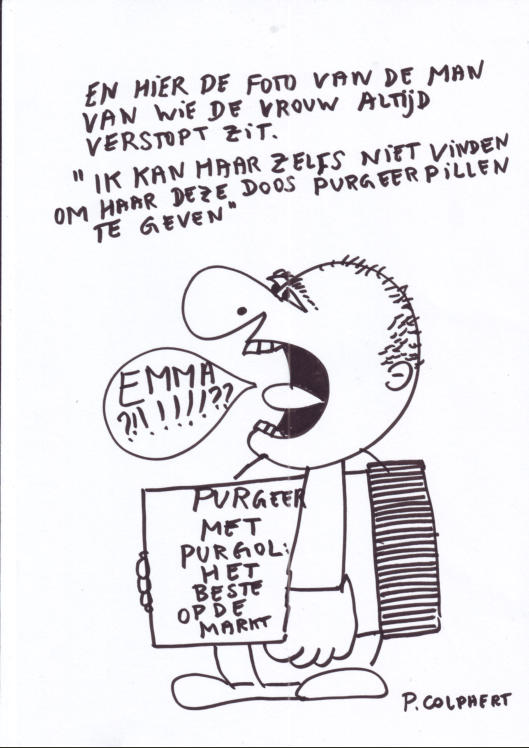 EN HIER DE FOTO VAN DE MAN
VAN WIE DE VROUW ALTIJD
VERSTOPT ZIT.
"IK KAN HAAR ZELFS NIET VINDEN
OM HAAR DEZE DOOS PURGEERPILLEN
TE GEVEN"
EMMA
?!\!!!!??
PURGEER
MET
PURGOL:
HET
BESTE
OP DE
MARKT
P. COLPAERT